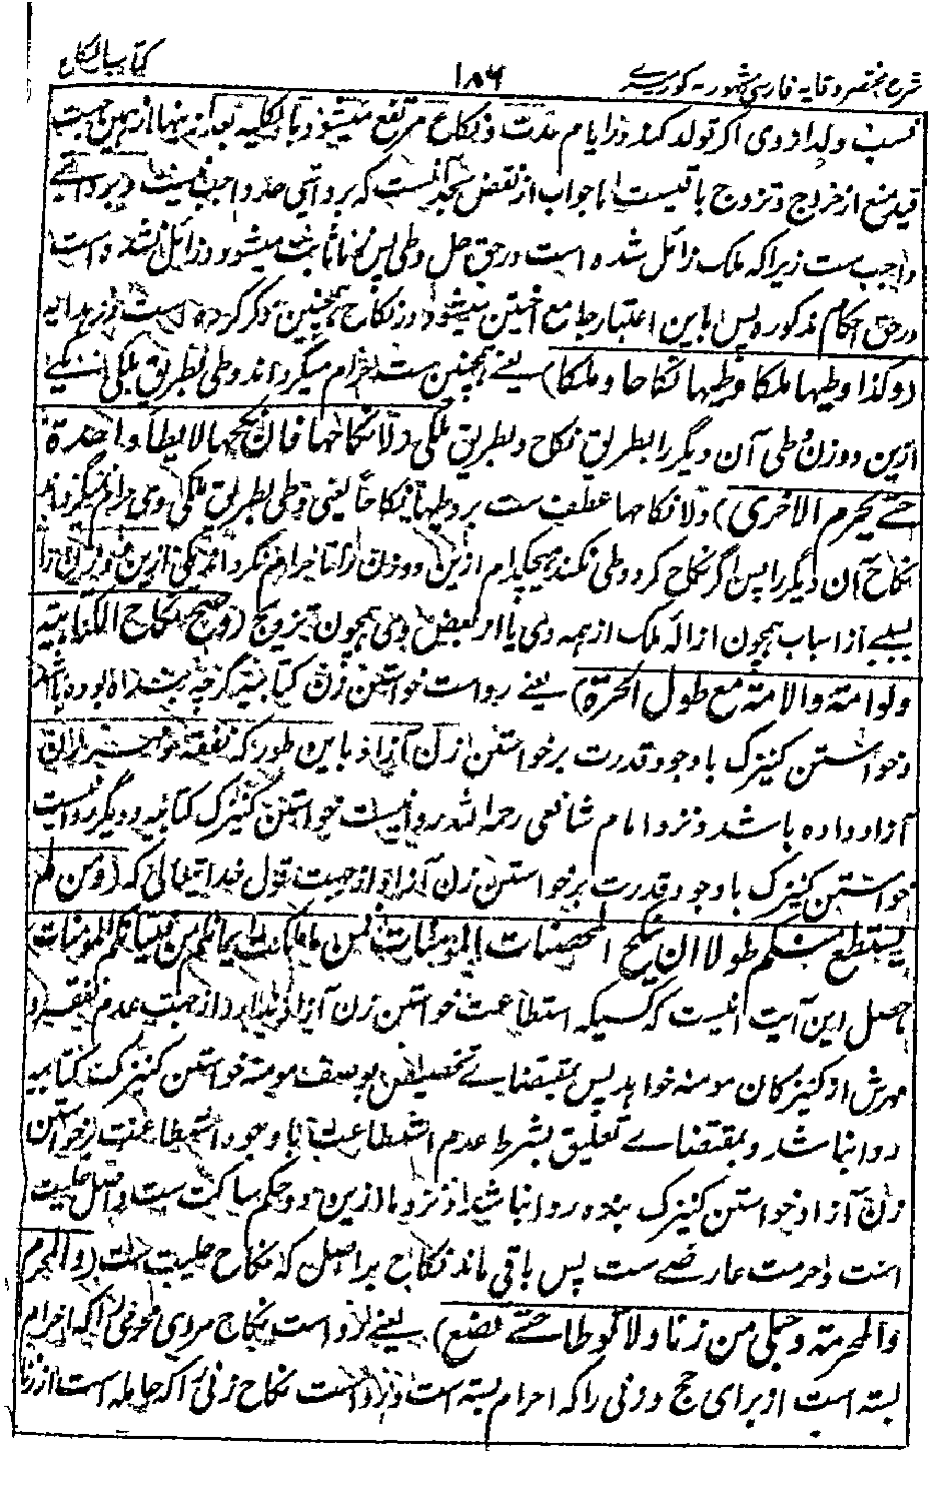 شرح مختصر وقایہ فارسی مشہور بہ کورسرے ۱۸۶ کتاب النکاح
نسب ولد از وی اگر تولد کند در ایام عدت و نکاح مرتفع میشود بالکلیہ بعد از اینها از همین جهت
قید منع از خروج و تزوج باقیست اما جواب از نقض بحد آنست که بر وایتی حد واجب نیست و بر وایتے
واجب ست زیرا که ملک زائل شده است در حق حل وطی پس زنا ثابت میشود و زائل نشده است
در حق احکام مذکوره پس باین اعتبار جامع اختین میشود در نکاح همچنین ذکر کرده است در هدایه
(وکذا وطیها ملکا وطیها نکاحا و ملکا) یعنے همچنین ست حرام میگرداند وطی بطریق ملکی یکے
ازین دو زن وطی آن دیگر را بطریق نکاح و بطریق ملکی (ولا نکاحها فان نکحها لا یطأ واحدة
حتے یحرم الاخری) ولا نکاحها عطف ست بر وطیها نکاحا یعنی وطی بطریق ملکی وی حرام نمیگرداند
نکاح آن دیگر را پس اگر نکاح کرد وطی نکند هیچکدام ازین دو زن را تا حرام نگرداند یکی ازین دو زن را
بسببے از اسباب همچون ازاله ملک از همه وی یا از بعض وی همچون تزویج (وصح نکاح الکتابیة
ولو امة والامة مع طول الحرة) یعنے رواست خواستن زن کتابیه گرچه بنده بوده باشد
و خواستن کنیزک با وجود قدرت بر خواستن زن آزاد باین طور که نفقه و مهر زن
آزاد داده باشد و نزد امام شافعی رحمه الله روا نیست خواستن کنیزک کتابیه و دیگر روا نیست
خواستن کنیزک با وجود قدرت بر خواستن زن آزاد از جهت قول خدا تعالی که (ومن لم
یستطع منکم طولا ان ینکح المحصنات المؤمنات فمن ما ملکت ایمانکم من فتیاتکم المؤمنات)
حاصل این آیت آنست که کسیکه استطاعت خواستن زن آزاد ندارد از جهت عدم نفقه و
مهرش از کنیزکان مومنه خواهد پس بمقتضاے تخصیص بوصف مومنه خواستن کنیزک کتابیه
روا نباشد و بمقتضاے تعلیق بشرط عدم استطاعت با وجود استطاعت بر خواستن
زن آزاد خواستن کنیزک بنده روا نباشد و نزد ما ازین دو حکم ساکت ست و اصل حلیت
است و حرمت عارضے ست پس باقی ماند نکاح بر اصل که نکاح حلیت ست (والمحرم
والمحرمة وحبلی من زنا ولا توطأ حتے تضع) یعنے رواست نکاح مردی محرمی که احرام
بسته است از برای حج و زنی را که احرام بسته است و رواست نکاح زنی که حامله است از زنا